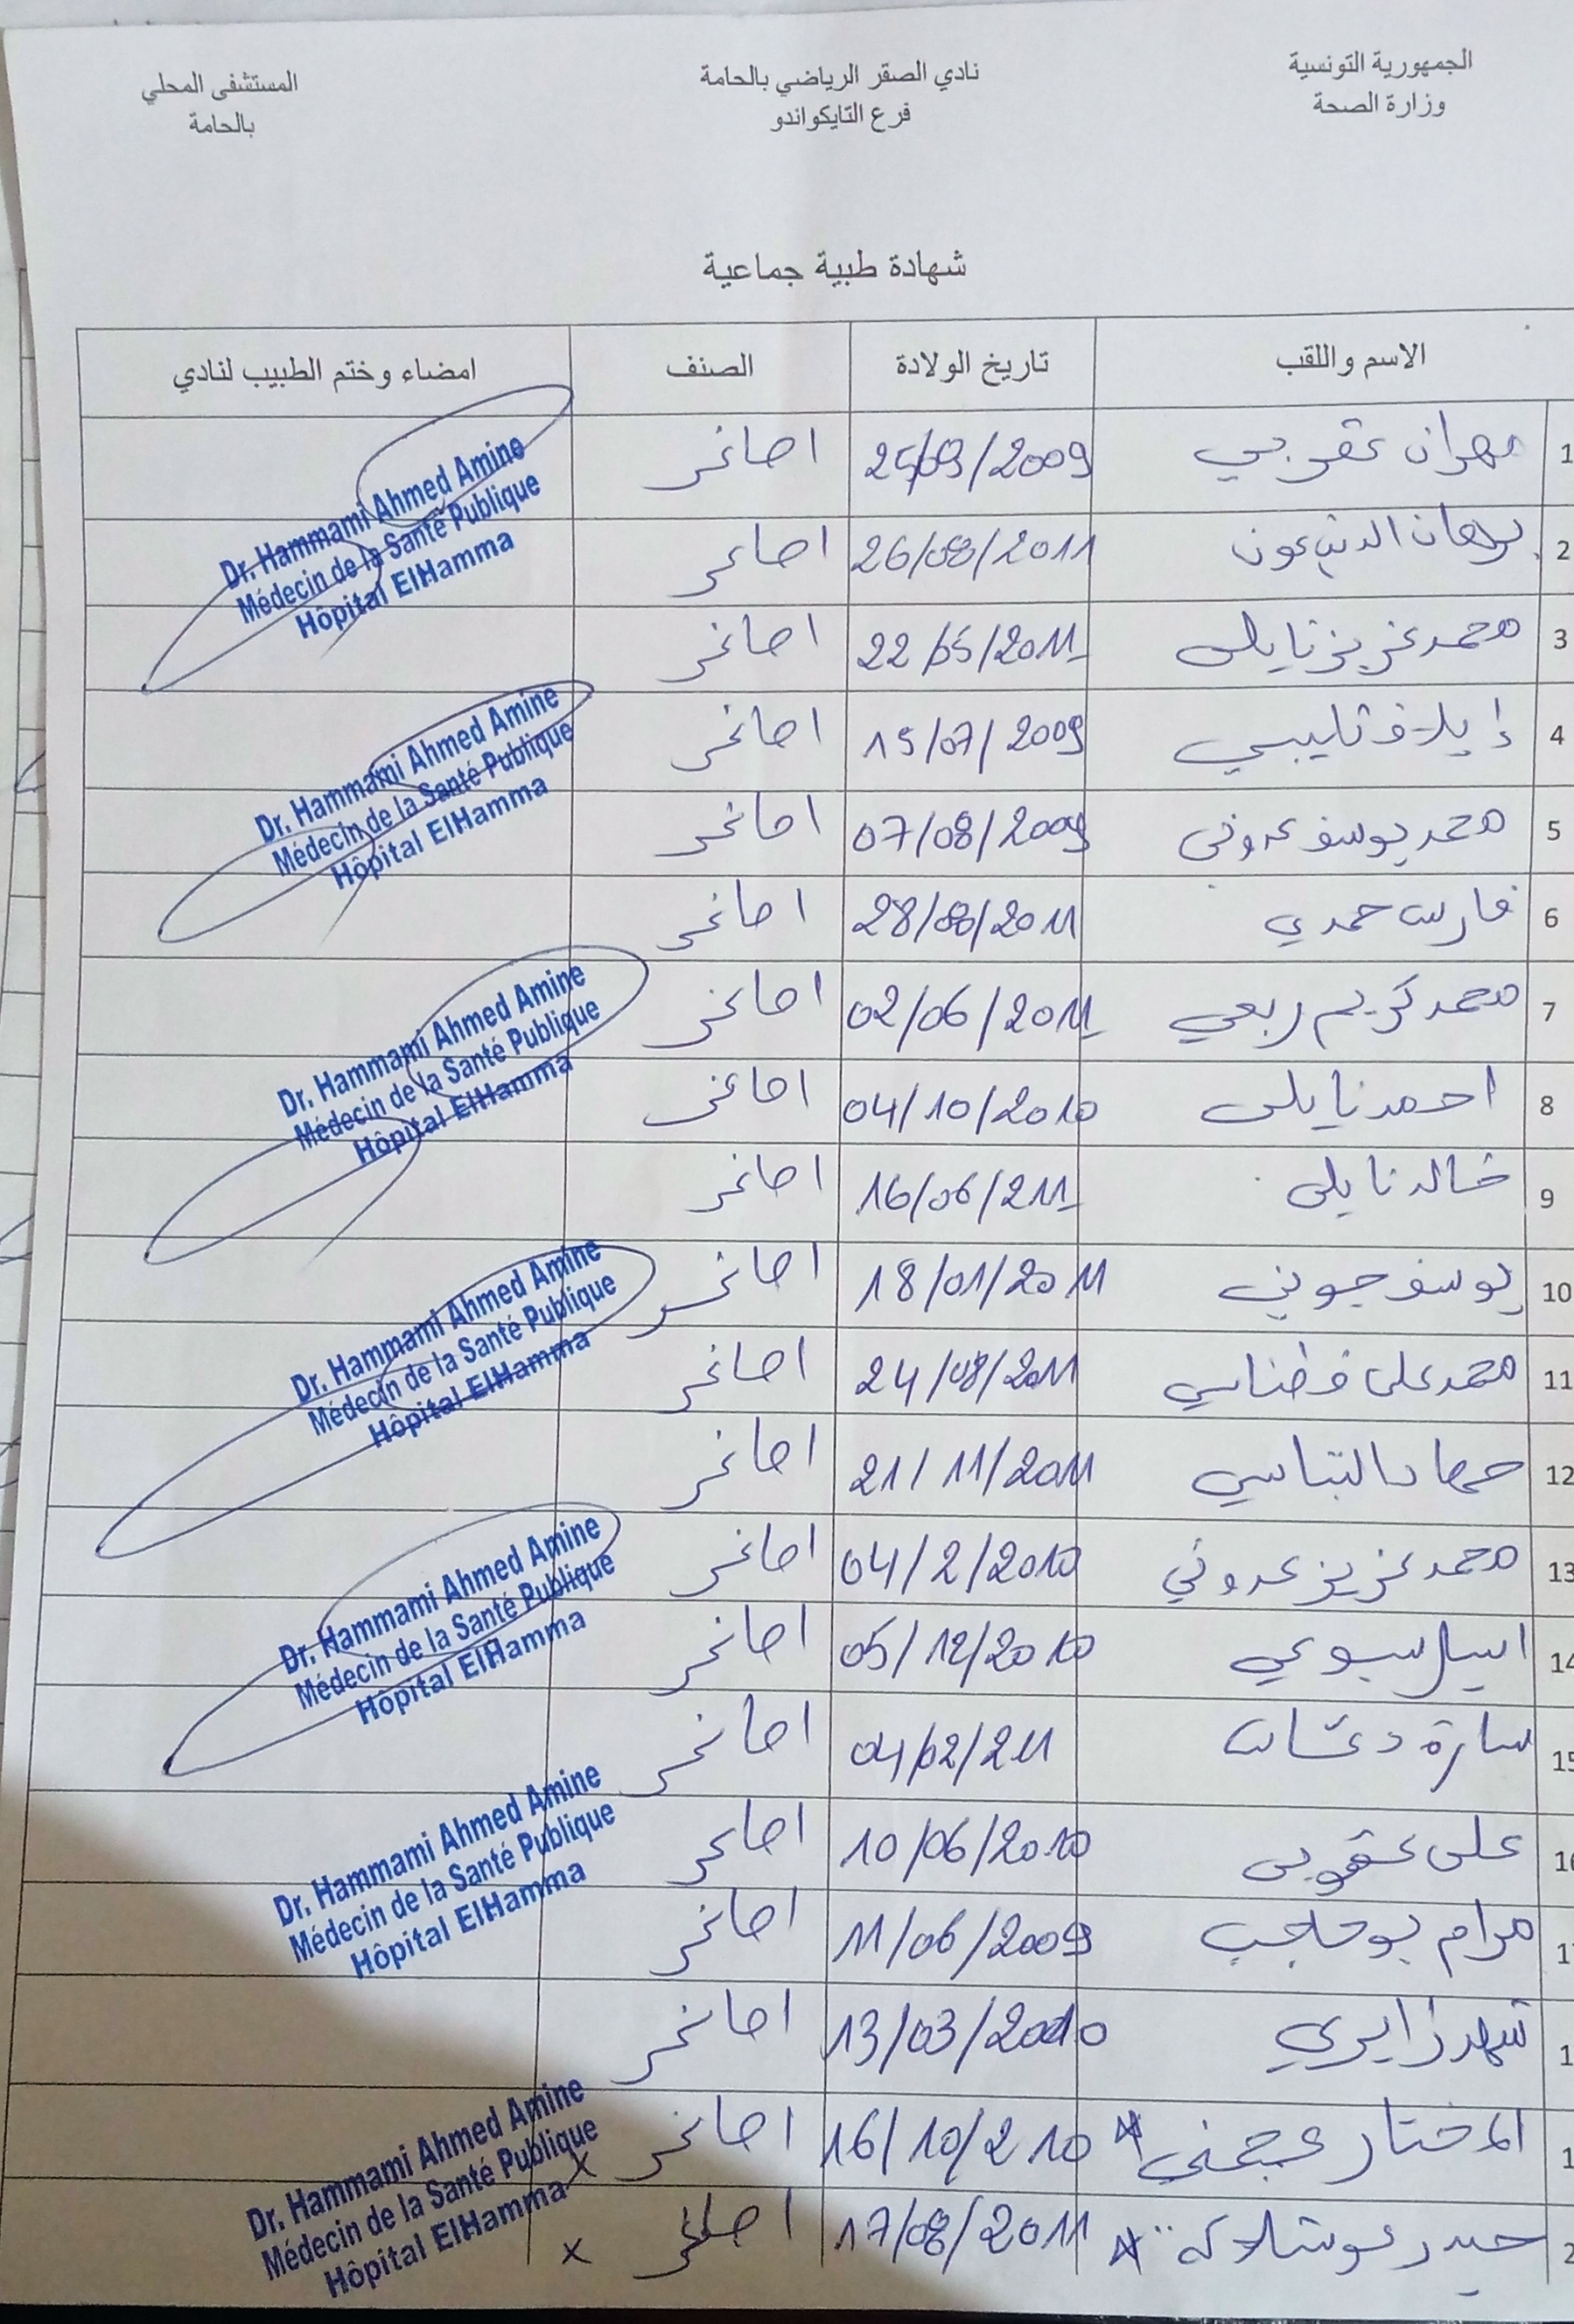 الجمهورية التونسية
وزارة الصحة
نادي الصقر الرياضي بالحامة
فرع التايكواندو
المستشفى المحلي
بالحامة
شهادة طبية جماعية
الاسم واللقب تاريخ الولادة الصنف امضاء وختم الطبيب لنادي
1 مهران عقربي 25/09/2009 اصاغر
2 برهان الدين عون 26/08/2011 اصاغر
3 محمد عزيز نايلي 22/05/2011 اصاغر
4 إيلاف تليبي 15/07/2009 اصاغر
5 محمد يوسف عروني 07/08/2009 اصاغر
6 فارس حمدي 28/08/2011 اصاغر
7 محمد كريم ربعي 02/06/2011 اصاغر
8 احمد نايلي 04/10/2010 اصاغر
9 خالد نايلي 16/06/211 اصاغر
10 يوسف جويني 18/01/2011 اصاغر
11 محمد علي قطناسي 24/08/2011 اصاغر
12 21/11/2011 اصاغر
13 محمد عزيز عروني 04/2/2010 اصاغر
14 اسيل سبوعي 05/12/2010 اصاغر
15 سارة دغسان 04/02/211 اصاغر
16 علي عقربي 10/06/2010 اصاغر
1 مرام بوحاجب 11/06/2009 اصاغر
1 شهد زايري 13/03/2010 اصاغر
1 المختار عجمني 16/10/210 اصاغر x
2 حيدر 17/08/2011 اصاغر x
Dr. Hammami Ahmed Amine
Médecin de la Santé Publique
Hôpital ElHamma
Dr. Hammami Ahmed Amine
Médecin de la Santé Publique
Hôpital ElHamma
Dr. Hammami Ahmed Amine
Médecin de la Santé Publique
Hôpital ElHamma
Dr. Hammami Ahmed Amine
Médecin de la Santé Publique
Hôpital ElHamma
Dr. Hammami Ahmed Amine
Médecin de la Santé Publique
Hôpital ElHamma
Dr. Hammami Ahmed Amine
Médecin de la Santé Publique
Hôpital ElHamma
Dr. Hammami Ahmed Amine
Médecin de la Santé Publique
Hôpital ElHamma